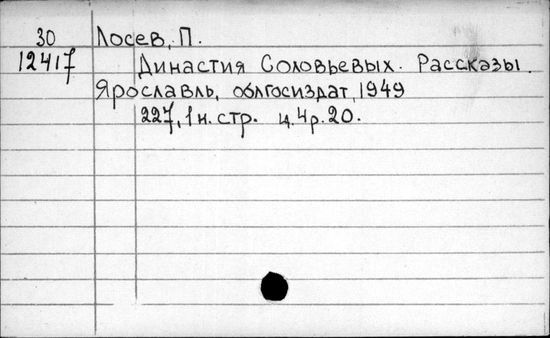 30 Лосев, П.
12417 Династия Соловьевых. Рассказы.
Ярославль, облгосиздат, 1949
227, 1 н. стр. ц. 4 р. 20.